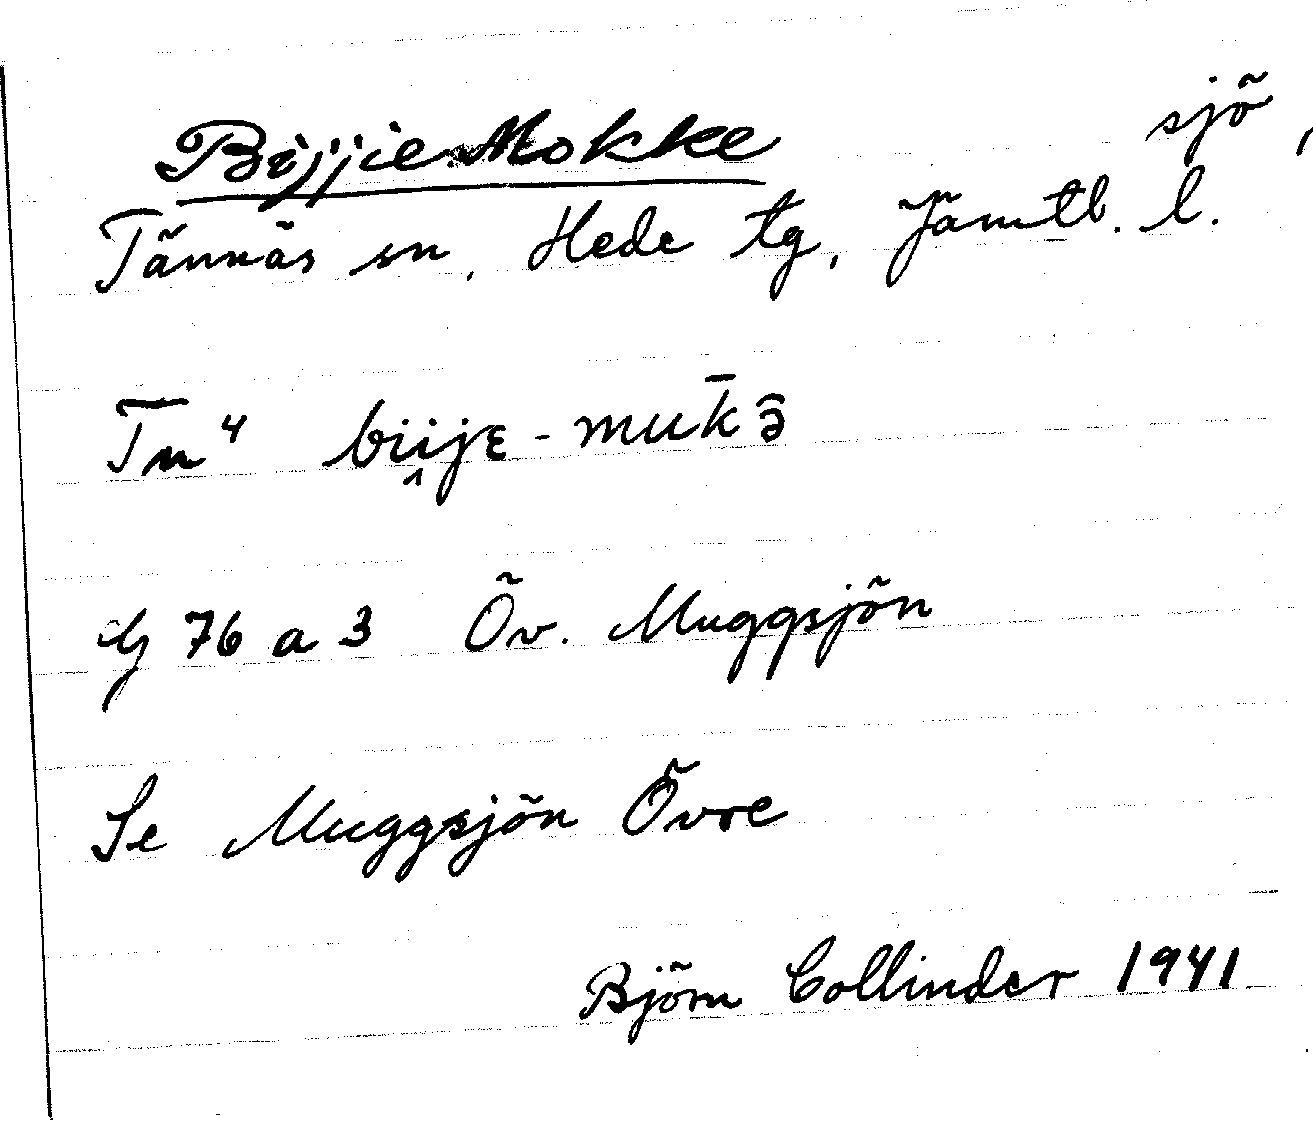 Bijjie Mokke sjö,
Tännäs sn, Hede tg, Jämtl. l.
Tn⁴ bii̭jɛ - muk̄ə̑
G 76 a 3 Öv. Muggsjön
Se Muggsjön Övre
Björn Collinder 1941